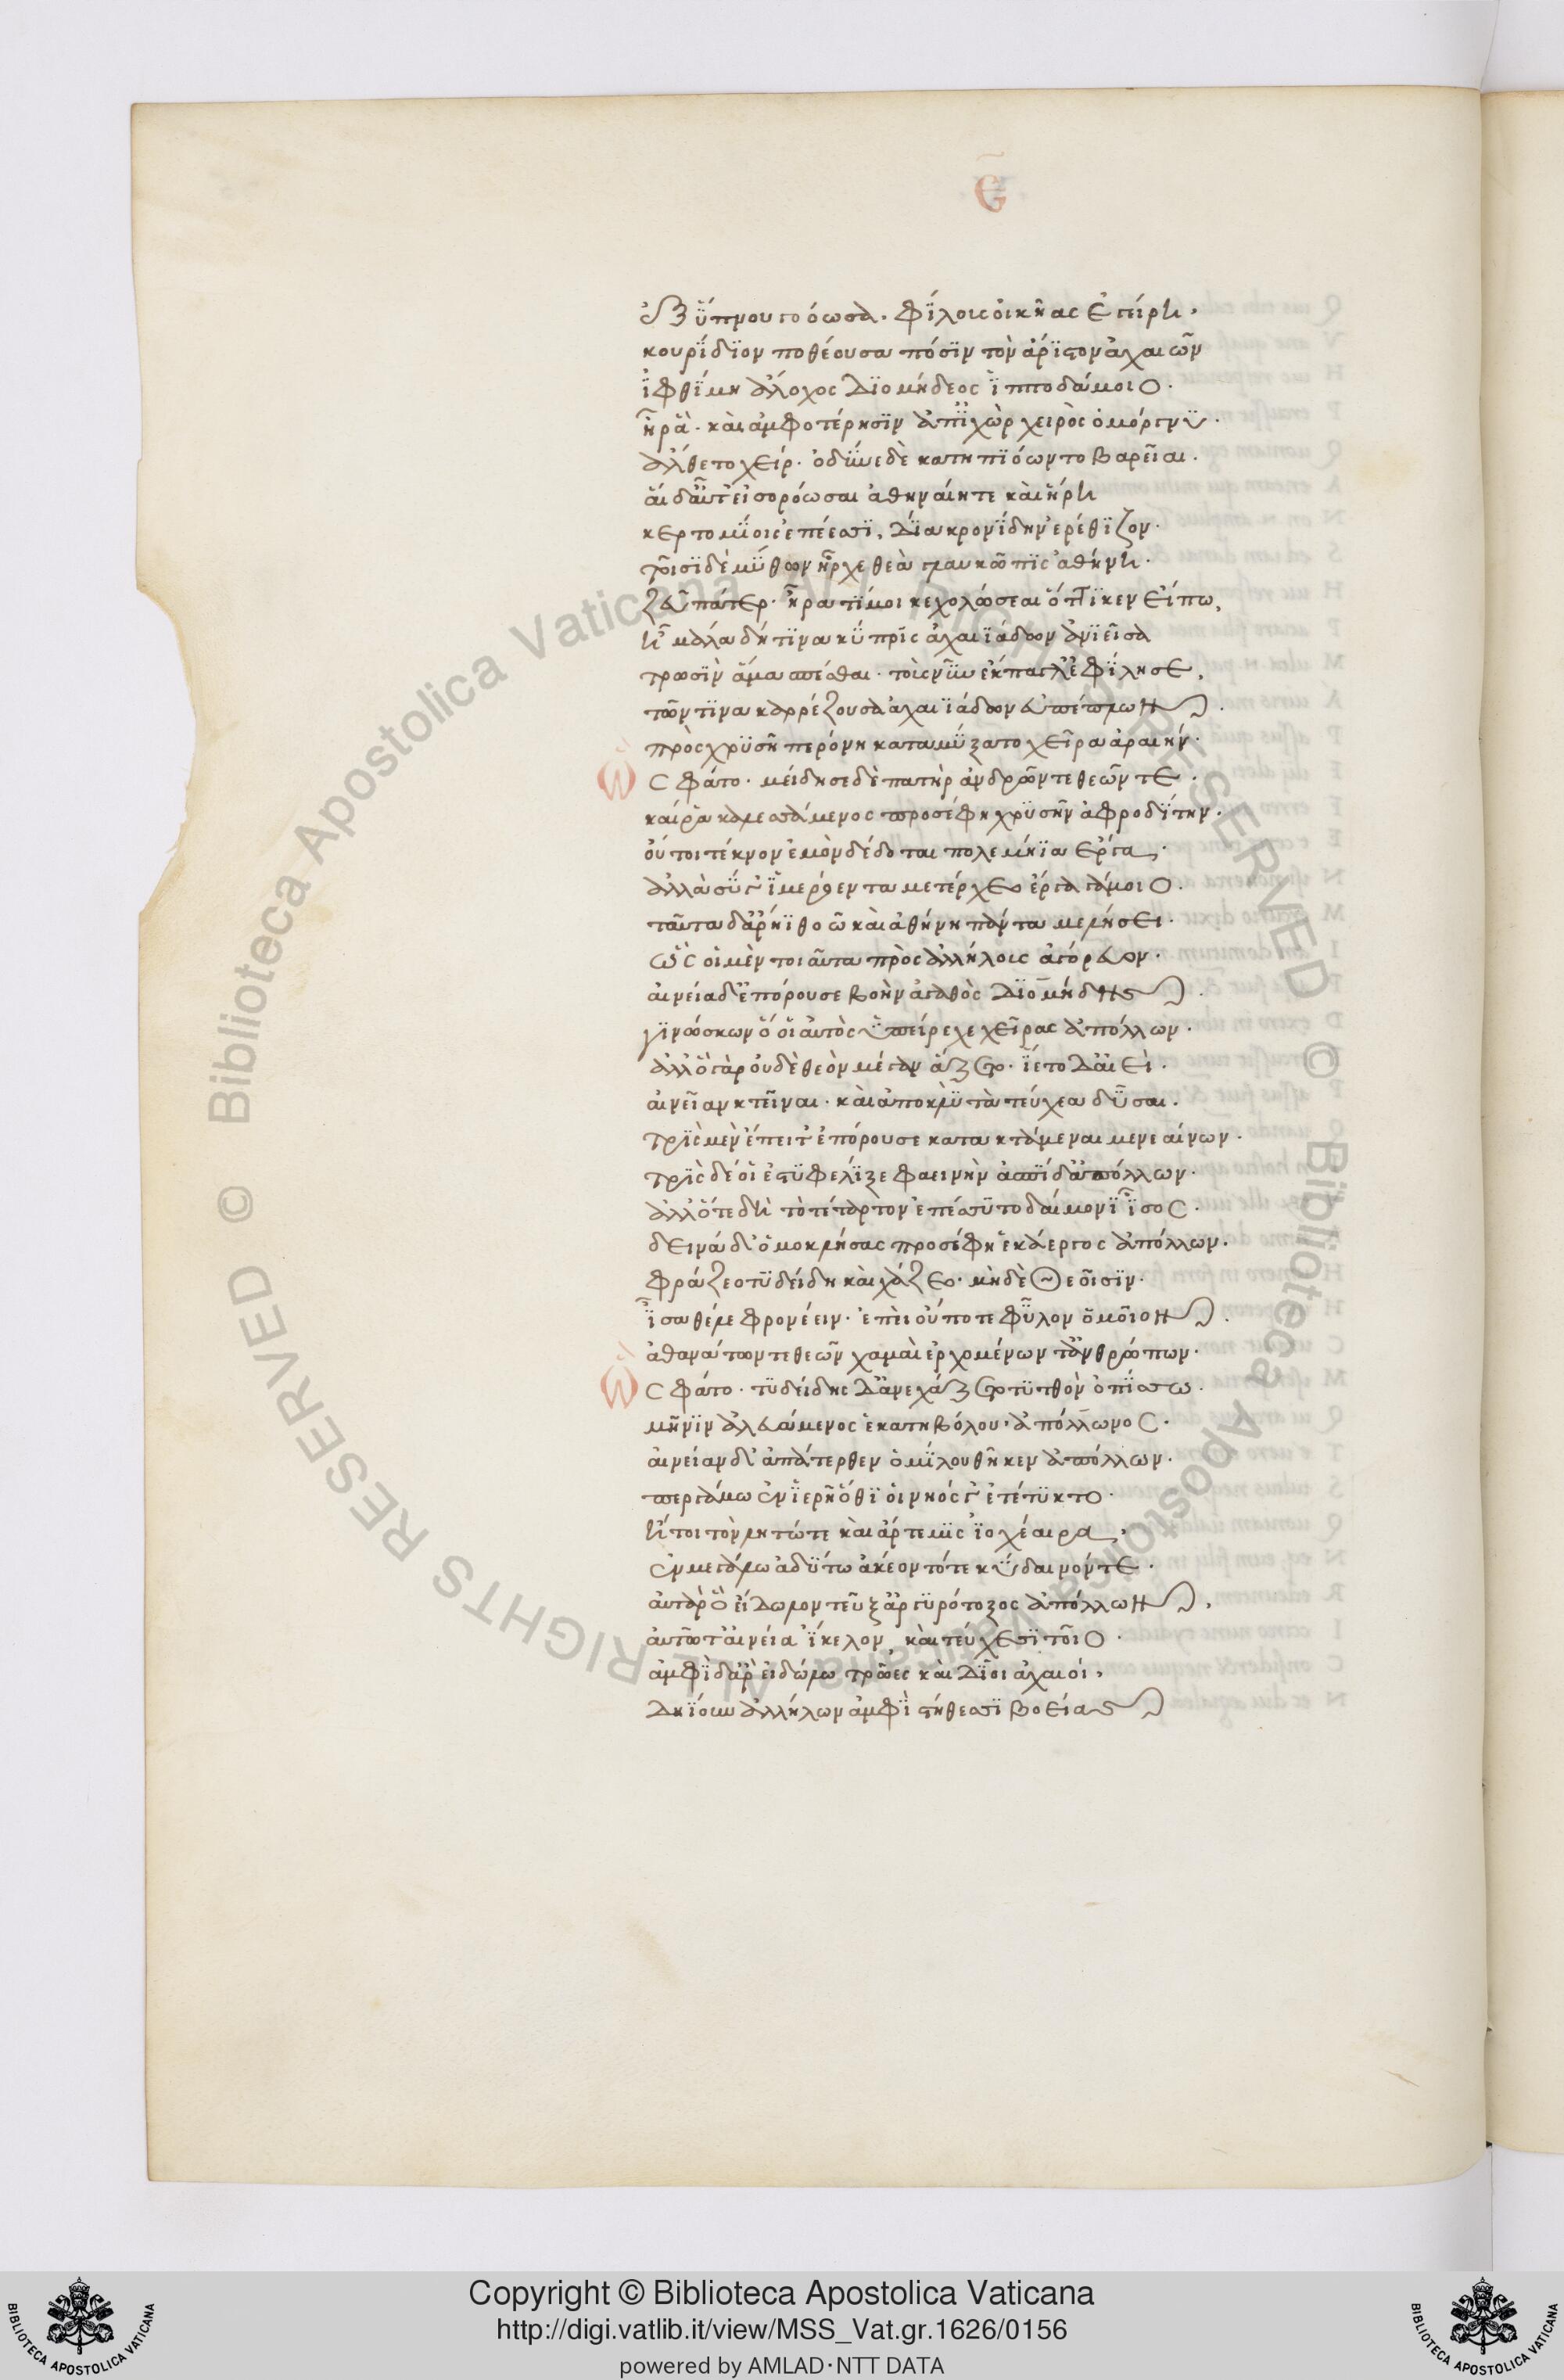 Ε
ἐξ ὕπνου γοόωσα. φίλους οἰκῆας ἐγείρη.
κουρίδιον ποθέουσα πόσιν τὸν ἄριστον ἀχαιῶν
ἰφθίμη ἄλοχος διομήδεος ἱπποδάμοιο.
ἦ ῥα. καὶ ἀμφοτέρησιν ἀπ ἰχὼρ χειρὸς ὀμόργνυ.
ἄλθετο χείρ. ὀδύναι δὲ κατηπιόωντο βαρεῖαι.
αἱ δ αὖτ εἰσορόωσαι ἀθηναίη τε καὶ ἥρη
κερτομίοις ἐπέεσσι, δία κρονίδην ἐρέθιζον.
τοῖσι δὲ μύθων ἦρχε θεὰ γλαυκῶπις ἀθήνη.
ζεῦ πάτερ. ἦ ρά τί μοι κεχολώσεαι ὅττι κεν εἴπω,
ἦ μάλα δή τινα κύπρις ἀχαιϊάδων ἀνιεῖσα
τρωσὶν ἅμα σπέσθαι. τοὺς νῦν ἔκπαγλ ἐφίλησε,
τῶν τινα καρρέζουσα ἀχαιϊάδων εὐπέπλων.
πρὸς χρυσῆ περόνη καταμύξατο χεῖρα ἀραιήν.
Ὣς φάτο. μείδησε δὲ πατὴρ ἀνδρῶν τε θεῶν τε.
καί ῥα καλεσσάμενος προσέφη χρυσῆν ἀφροδίτην.
οὔ τοι τέκνον ἐμὸν δέδοται πολεμήϊα ἔργα.
ἀλλὰ σύ γ ἱμερόεντα μετέρχεο ἔργα γάμοιο.
ταῦτα δ ἄρηϊ θοῶ καὶ ἀθήνη πάντα μελήσει.
ὣς οἱ μὲν τοιαῦτα πρὸς ἀλλήλους ἀγόρευον.
αἰνεία δ ἐπόρουσε βοὴν ἀγαθὸς διομήδης.
γινώσκων ὅ οἱ αὐτὸς ὑπείρεχε χεῖρας ἀπόλλων.
ἀλλ ὅ γ ἀρ οὐδὲ θεὸν μέγαν ἅζετο. ἵετο δ αἰεὶ.
αἰνείαν κτεῖναι. καὶ ἀπο κλυτὰ τεύχεα δῦσαι.
τρὶς μὲν ἔπειτ ἐπόρουσε κατακτάμεναι μενεαίνων.
τρὶς δέ οἱ ἐστυφέλιξε φαεινὴν ἀσπίδ ἀπόλλων.
ἀλλ ὅτε δὴ τὸ τέταρτον ἐπέσσυτο δαίμονι ἶσος.
δεινὰ δ ὁμοκλήσας προσέφη ἑκάεργος ἀπόλλων.
φράζεο τυδείδη καὶ χάζεο. μὴδὲ θεοῖσιν.
ἶσ ἔθελε φρονέειν. ἐπεὶ οὔποτε φῦλον ὁμοῖον.
ἀθανάτων τε θεῶν χαμαὶ ἐρχομένων τ ἀνθρώπων.
Ὣς φάτο. τυδείδης δ ἀνεχάζετο τυτθὸν ὀπίσσω.
μῆνιν ἀλευάμενος ἑκατηβόλου ἀπόλλωνος.
αἰνείαν δ ἀπάτερθεν ὁμίλου θῆκεν ἀπόλλων.
περγάμω ἐν ἱερῆ ὅθι οἱ νηός γ ἐτέτυκτο.
ἤτοι τὸν λητώ τε καὶ ἄρτεμις ἰοχέαιρα,
ἐν μεγάλω ἀδύτω ἀκέοντό τε κύδαινόν τε.
αὐτὰρ ὃ εἴδωλον τεῦξ ἀργυρότοξος ἀπόλλων,
αὐτῶ τ αἰνεία ἴκελον, καὶ τεύχεσι τοῖο.
ἀμφὶ δ ἄρ εἰδώλω τρῶες καὶ δῖοι ἀχαιοί,
δήϊουν ἀλλήλων ἀμφὶ στήθεσσι βοείας
Copyright © Biblioteca Apostolica Vaticana
http://digi.vatlib.it/view/MSS_Vat.gr.1626/0156
powered by AMLAD·NTT DATA